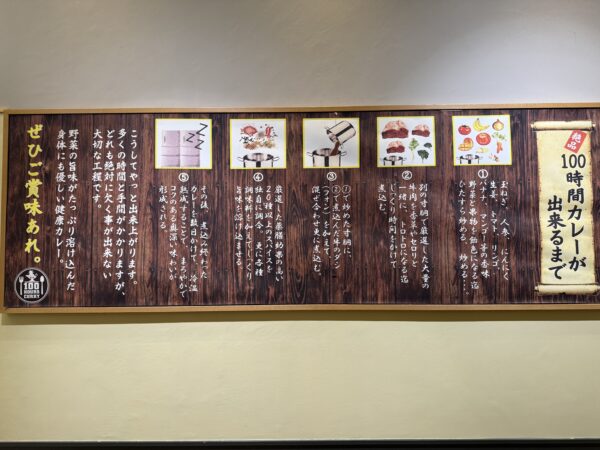 絶品
100時間カレーが
出来るまで
①
玉ねぎ、人参、にんにく
生姜、トマト、リンゴ、
バナナ、マンゴー等の香味
野菜と果物を飴色になる迄
ひたすら炒める、炒める…。
②
別の寸胴で厳選した大量の
牛肉を香菜やセロリと
一緒に、トロトロになる迄
じっくり時間をかけて
煮込む。
③
①で炒めた寸胴に、
②で煮込んだ牛のダシ
(フォン)を加えて、
混ぜ合わせ更に煮込む。
④
厳選した薬膳効果の高い
20種以上のスパイスを
独自に調合。更に各種
調味料を加えてじっくり
旨味を溶け込ませる。
⑤
その後、煮込み終わった
ルーを数日かけて、冷温
熟成することで、まろやかで
コクのある奥深い味わいが
形成される。
こうしてやっと出来上がります。
多くの時間と手間がかかりますが、
どれも絶対に欠く事が出来ない
大切な工程です。
野菜の旨味がたっぷり溶け込んだ
身体にも優しい健康カレー。
ぜひご賞味あれ。
100
HOURS
CURRY
ZZZ